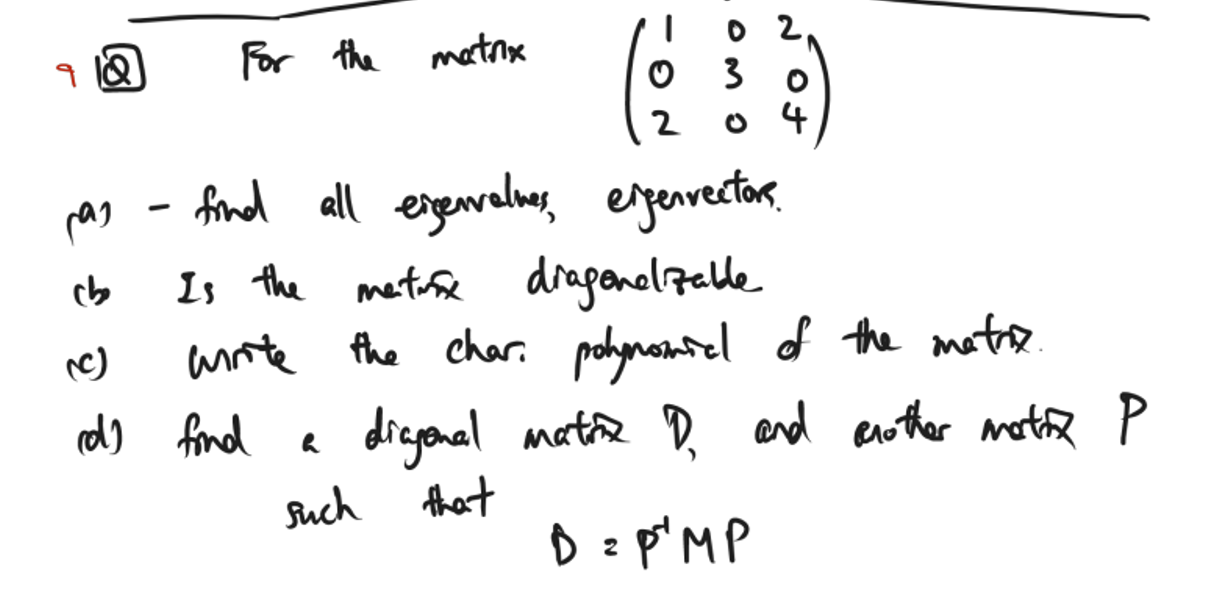 9 Q For the matrix
1 0 2
0 3 0
2 0 4
(a) - find all eigenvalues, eigenvectors.
(b) Is the matrix diagonalizable
(c) write the char. polynomial of the matrix.
(d) find a diagonal matrix D, and another matrix P
such that
D = P⁻¹ M P